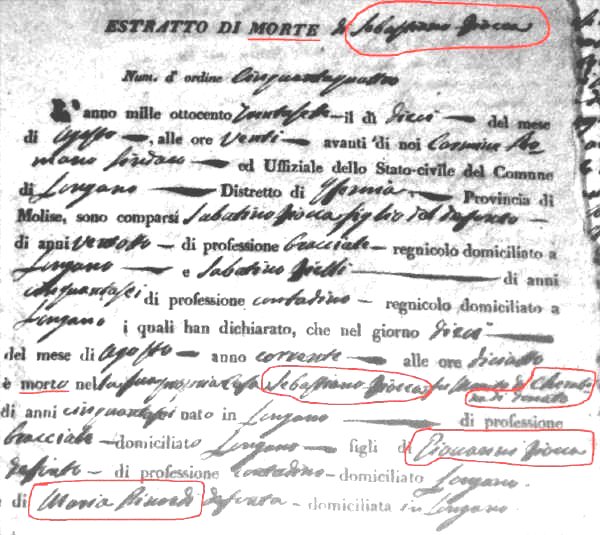 ESTRATTO DI MORTE di Sebastiano
Num. d' ordine Cinquantaquattro
L' anno mille ottocento trentasette il di dieci del mese
di Agosto, alle ore venti avanti di noi Carmine Ro-
mano Sindaco ed Uffiziale dello Stato-civile del Comune
di Longano Distretto di Isernia Provincia di
Molise, sono comparsi Sabatino figlio del defunto
di anni ventotto di professione bracciale regnicolo domiciliato a
Longano e Sabatino di anni
cinquantasei di professione contadino regnicolo domiciliato a
Longano i quali han dichiarato, che nel giorno dieci
del mese di Agosto anno corrente alle ore diciotto
è morto nella sua propria casa Sebastiano marito di Cherub-
ina di Donato
di anni cinquantasei nato in Longano di professione
bracciale domiciliato Longano figli di Giovanni
defunto di professione contadino domiciliato Longano
e di Maria defunta domiciliata in Longano.